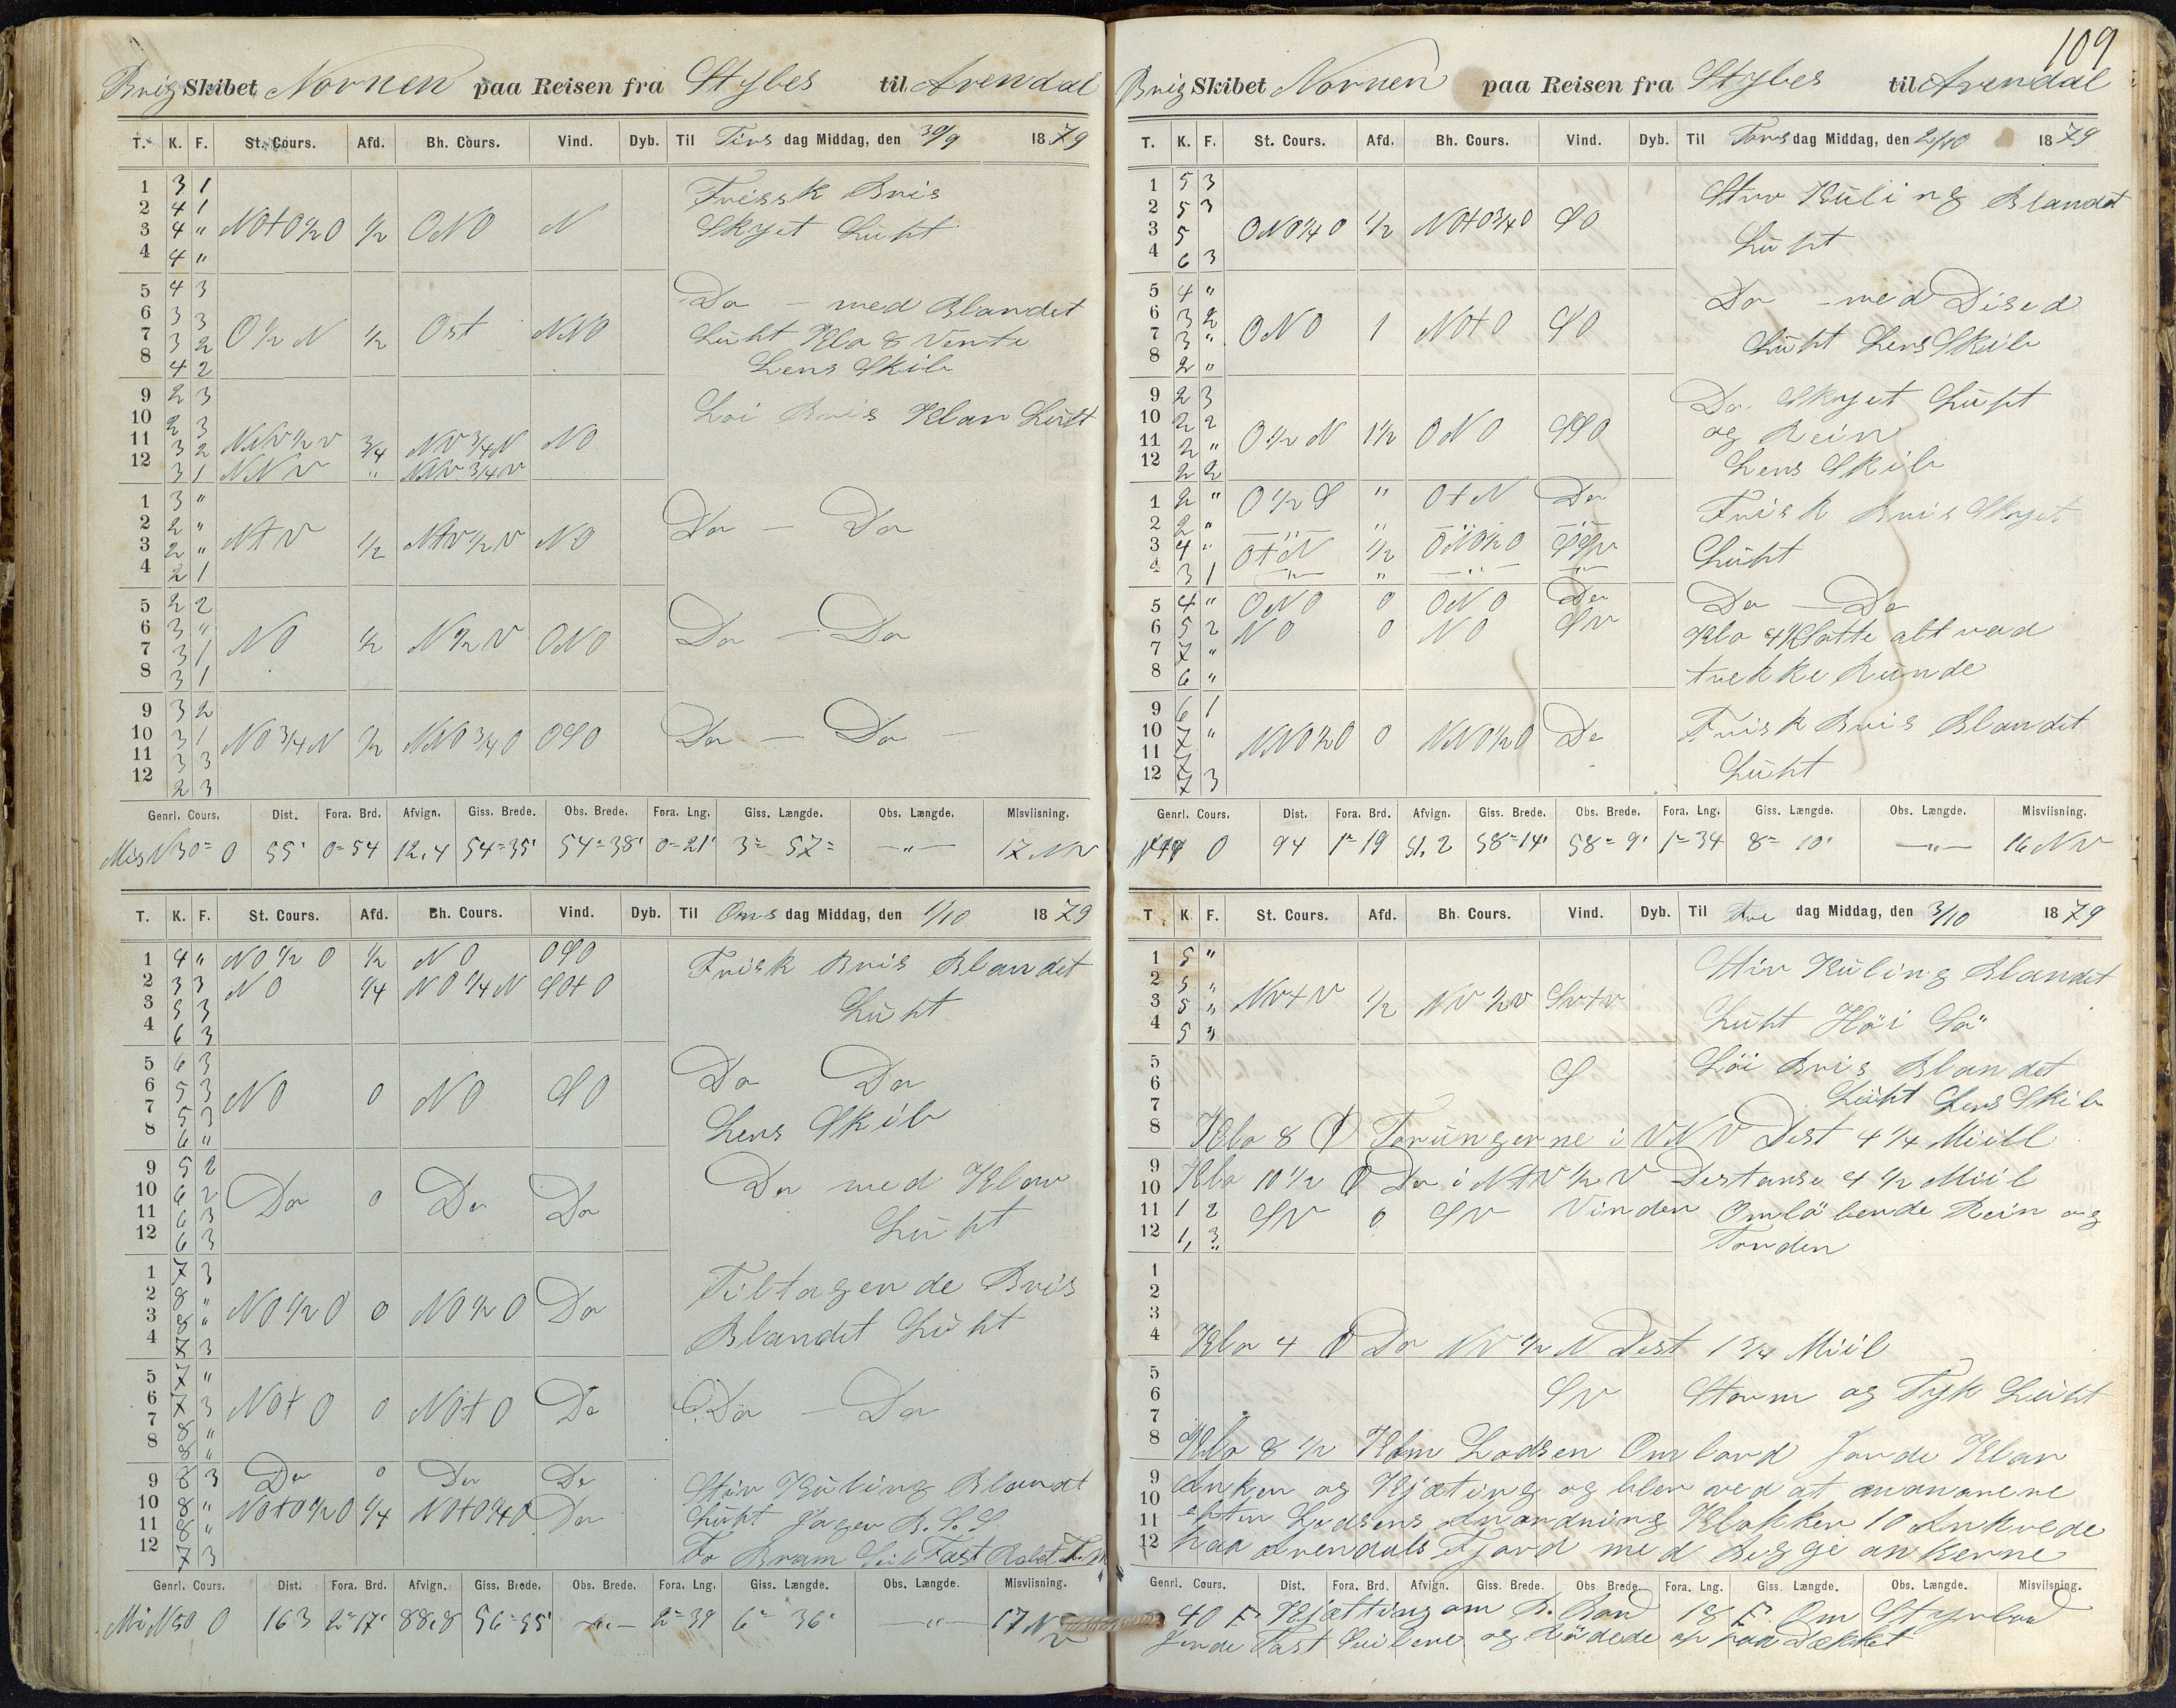 Brig Skibet Nornen paa Reisen fra Stybes til Arendal
T. K. F. St. Cours. Afd. Bh. Cours. Vind. Dyb. Til Tirs dag Middag, den 30/9 1879
1 3 1 Frissk Bris
2 4 1
3 4 " NOtO½O ½ ONO N Skyet Luht
4 4 "
5 4 3 Do - med Blandet
6 3 3
7 3 2 O½N ½ Ost NNO Luht Klo 8 Vente
8 4 2 Lens Skib
9 2 3 Löi Bris Klar Luht
10 2 3
11 3 2 NNV½V ¾ NV¾N NO
12 3 1 NNV " NNV¾V
1 3 "
2 2 " Do - Do
3 2 " NtV ½ NtV½V NO
4 2 1
5 2 2
6 3 " Do - Do
7 3 1 NO ½ N½V ONO
8 3 1
9 3 2
10 3 1 NO¾N ½ NNO¾O OSO Do - Do -
11 3 3
12 2 3
Genrl. Cours. Dist. Fora. Brd. Afvign. Giss. Brede. Obs. Brede. Fora. Lng. Giss. Længde. Obs. Længde. Misviisning.
Mis N30= O 55' 0=54 12,4 54=35' 54=38' 0=21' 3= 57= -"- 17 NV
T. K. F. St. Cours. Afd. Bh. Cours. Vind. Dyb. Til Ons dag Middag, den 1/10 1879
1 4 " NO½O ½ NO OSO Frisk Bris Blandet
2 3 3 NO ¼ NO¼N SOtO
3 5 3 Luht
4 6 3
5 6 3 Do Do
6 5 3 NO 0 NO SO
7 5 3 Lens Skib
8 6 "
9 5 2 Do med Klar
10 6 2 Do 0 Do Do
11 6 3 Luht
12 6 3
1 7 3 Tiltagende Bris
2 8 " NO½O 0 NO½O Do
3 8 " Blandet Luht
4 7 3
5 7 "
6 7 3 NOtO 0 NOtO Do Do - Do
7 8 "
8 8 "
9 8 3 Do 0 Do Do Stiv Kuling Blandt
10 8 " NOtO½O ¼ NOtO¼O Do Luht
11 8 "
12 7 3 Fo Bram Seil Fast
Genrl. Cours. Dist. Fora. Brd. Afvign. Giss. Brede. Obs. Brede. Fora. Lng. Giss. Længde. Obs. Længde. Misviisning.
Mi N50 O 163 2=17' 88,8 56=55' -"- 2=39 6= 36' -"- 17 NV
109
Brig Skibet Nornen paa Reisen fra Stybes til Arendal
T. K. F. St. Cours. Afd. Bh. Cours. Vind. Dyb. Til Tors dag Middag, den 2/10 1879
1 5 3 Stiv Kuling Blandet
2 5 3
3 5 ONO¼O ½ NOtO¾O SO Luht
4 6 3
5 4 " Do - med Dised
6 3 2 ONO 1 NOtO SO
7 3 " Luht Lens Skib
8 2 "
9 2 3 Do Skyet Luht
10 2 2 og Rein
11 2 " O½N 1½ ONO SSO
12 2 2 Lens Skib
1 2 " O½S " OtN Do Frisk Bris Skyet
2 2 " -"- " -"- -"-
3 4 " OtN ½ ONO½O SSV Luht
4 3 1 -"- " -"- -"-
5 4 " ONO 0 ONO Do Do - Do
6 5 2 NO 0 NO SV Klo 4 Satte alt vad
7 7 " trekke kunde
8 6 "
9 6 1 Frisk Bris Blandet
10 7 " NNO½O 0 NNO½O Do
11 7 Luht
12 7 3
Genrl. Cours. Dist. Fora. Brd. Afvign. Giss. Brede. Obs. Brede. Fora. Lng. Giss. Længde. Obs. Længde. Misviisning.
O 94 1=19 51,2 58=14' 58=9' 1=34 8= 10' -"- 16 NV
T K. F. St. Cours. Afd. Bh. Cours. Vind. Dyb. Til Fre dag Middag, den 3/10 1879
1 5 " Stiv Kuling Blandet
2 5 "
3 5 " NVtV ½ NV½V SVtV
4 5 " Luht Höi Sö
5 Löi Bris Blandet
6 S
7 Luht Lens Skib
8 Klo 8 Torungerne i VNV Dist 4¼ Miill
9 Klo 10½ Do i NtV½V Distanse 4½ Miil
10
11 1 2 SV 0 SV Vinden Omlöbende Rein og
12 1, 3 Torden
1
2
3
4 Klo 4 Do NV½N Dist 1¾ Miil
5
6 SV Storm og Tyk Luht
7
8 Klo 8½ Kom Lodsen Ombord Jorde Klar
9 Anker og Kjæting og blev ved at manøvrere
10
11 efter Lodsens Anordning Klokken 10 Ankrede
12 paa Arendals Fjord med Begge ankerne
Genrl. Cours. Dist. Fora. Brd. Afvign. Giss. Brede. Obs Brede. Fora. Lng. Giss. Længde. Obs. Længde. Misviisning.
40 F. Kjætting om B. Bord 18 F. Om Styrbord
Jorde Fast Seilene og Rödede op paa Dækket